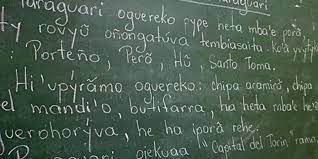 oguereko mba'e porã,
ty rovyũ oñongatúva tembiasaita. Ko'ã
: Porteño, Perõ, Hũ Santo Toma.
Hi'upyrãmo oguereko: chipa aramirõ, chipa
el mandi'o, butifarra, ha heta mba'e
uerohorýva, he ha iporã rehe.
ojekuaa "Capital del Torin" ramo,